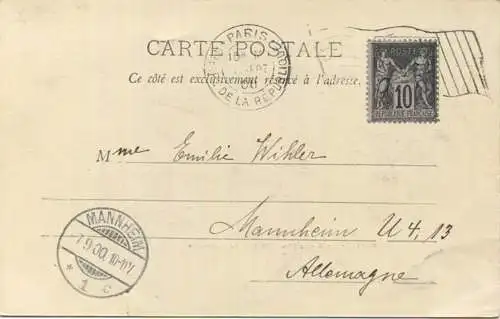 CARTE POSTALE
Ce côté est exclusivement réservé à l'adresse.
PARIS
DE LA RÉPUBLIQUE
POSTES
10
REPUBLIQUE FRANÇAISE
Mme Emilie Wihler
Mannheim U 4, 13
Allemagne
MANNHEIM
7.9.00. 10-11V
* 1 c